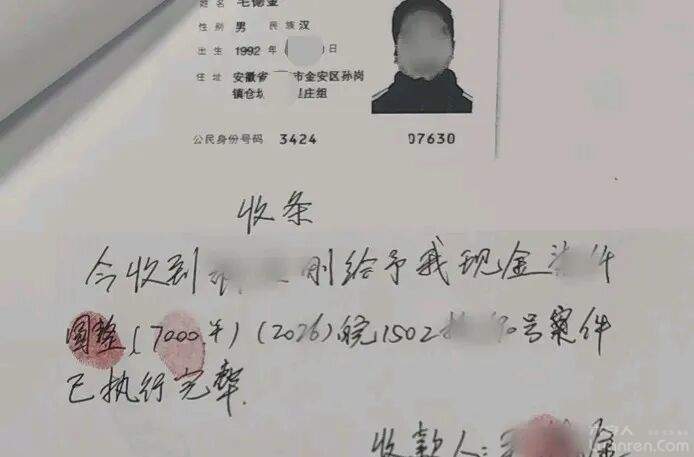 姓名 毛德金
性别 男 民族 汉
出生 1992 年 日
住址 安徽省 市金安区孙岗
镇仓 庄组
公民身份号码 3424 07630
收条
今收到 刚给予我现金 仟
圆整(7000元)(2026)皖1502执 90号案件
已执行完毕.
收款人: 金
六安人
Luanren.com